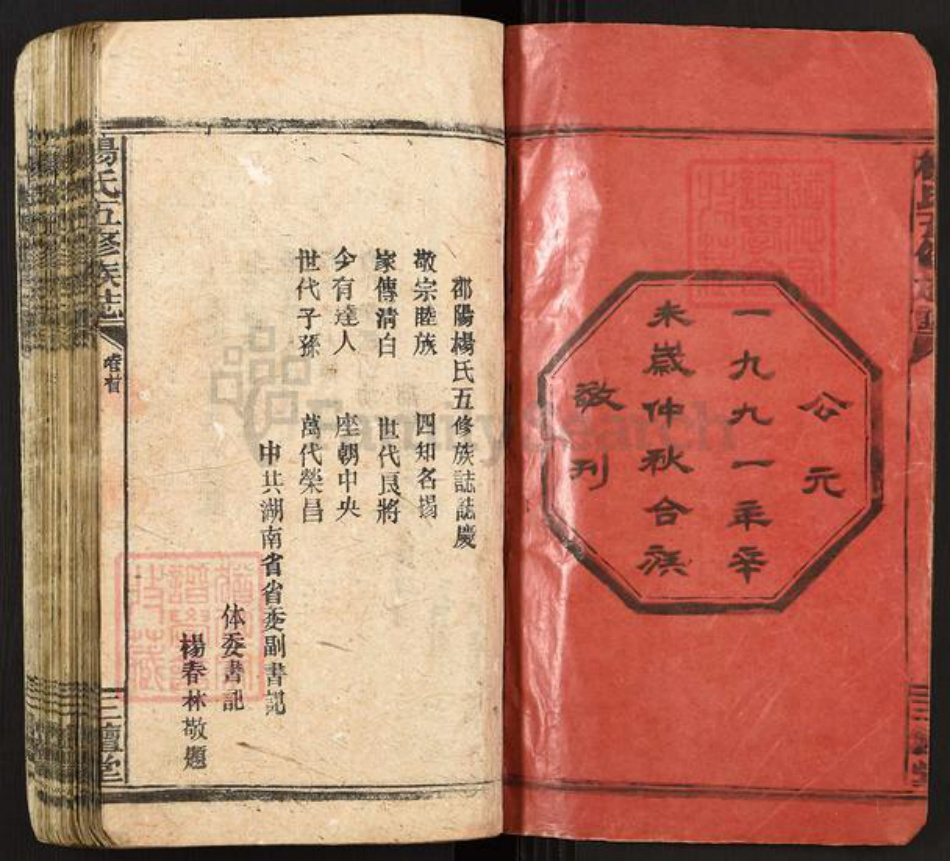 公元
一九九一年辛
未歲仲秋合族
敬刊
邵陽楊氏五修族誌誌慶
敬宗睦族 四知名揚
家傳清白 世代良將
今有達人 座朝中央
世代子孫 萬代榮昌
中共湖南省省委副書記
体委書記
楊春林敬題
楊氏五修族誌
卷首
三鱣堂
FamilySearch